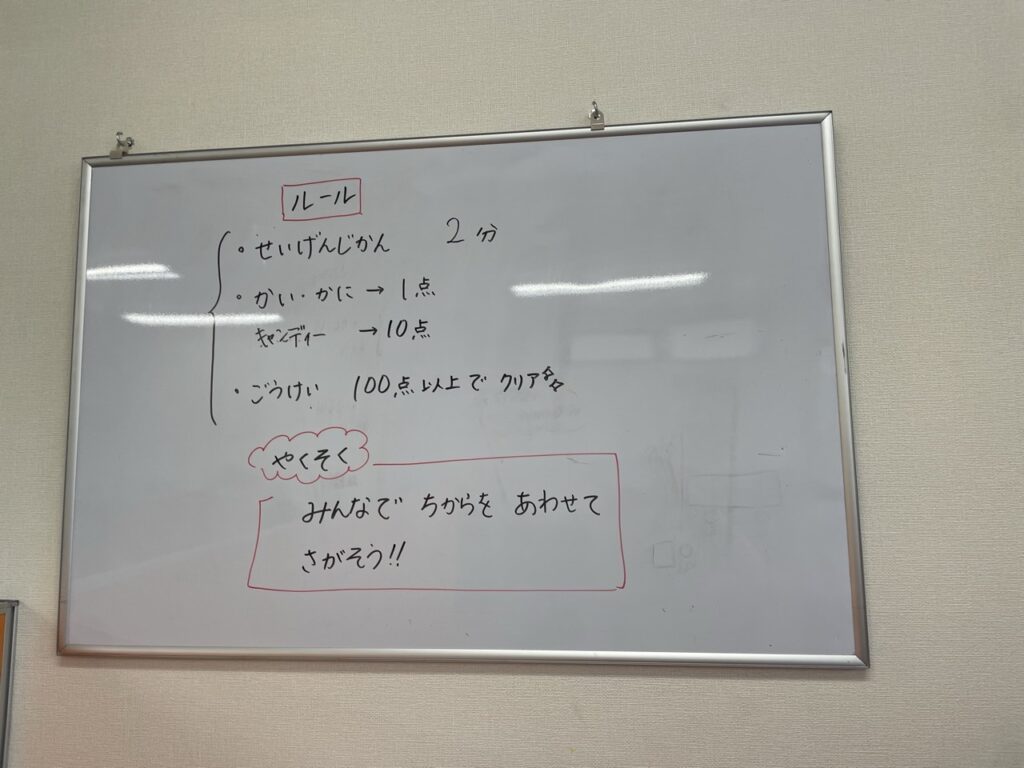 ルール
・せいげんじかん 2分
・かい・かに → 1点
キャンディー → 10点
・ごうけい 100点以上でクリア
やくそく
みんなで ちからを あわせて
さがそう!!